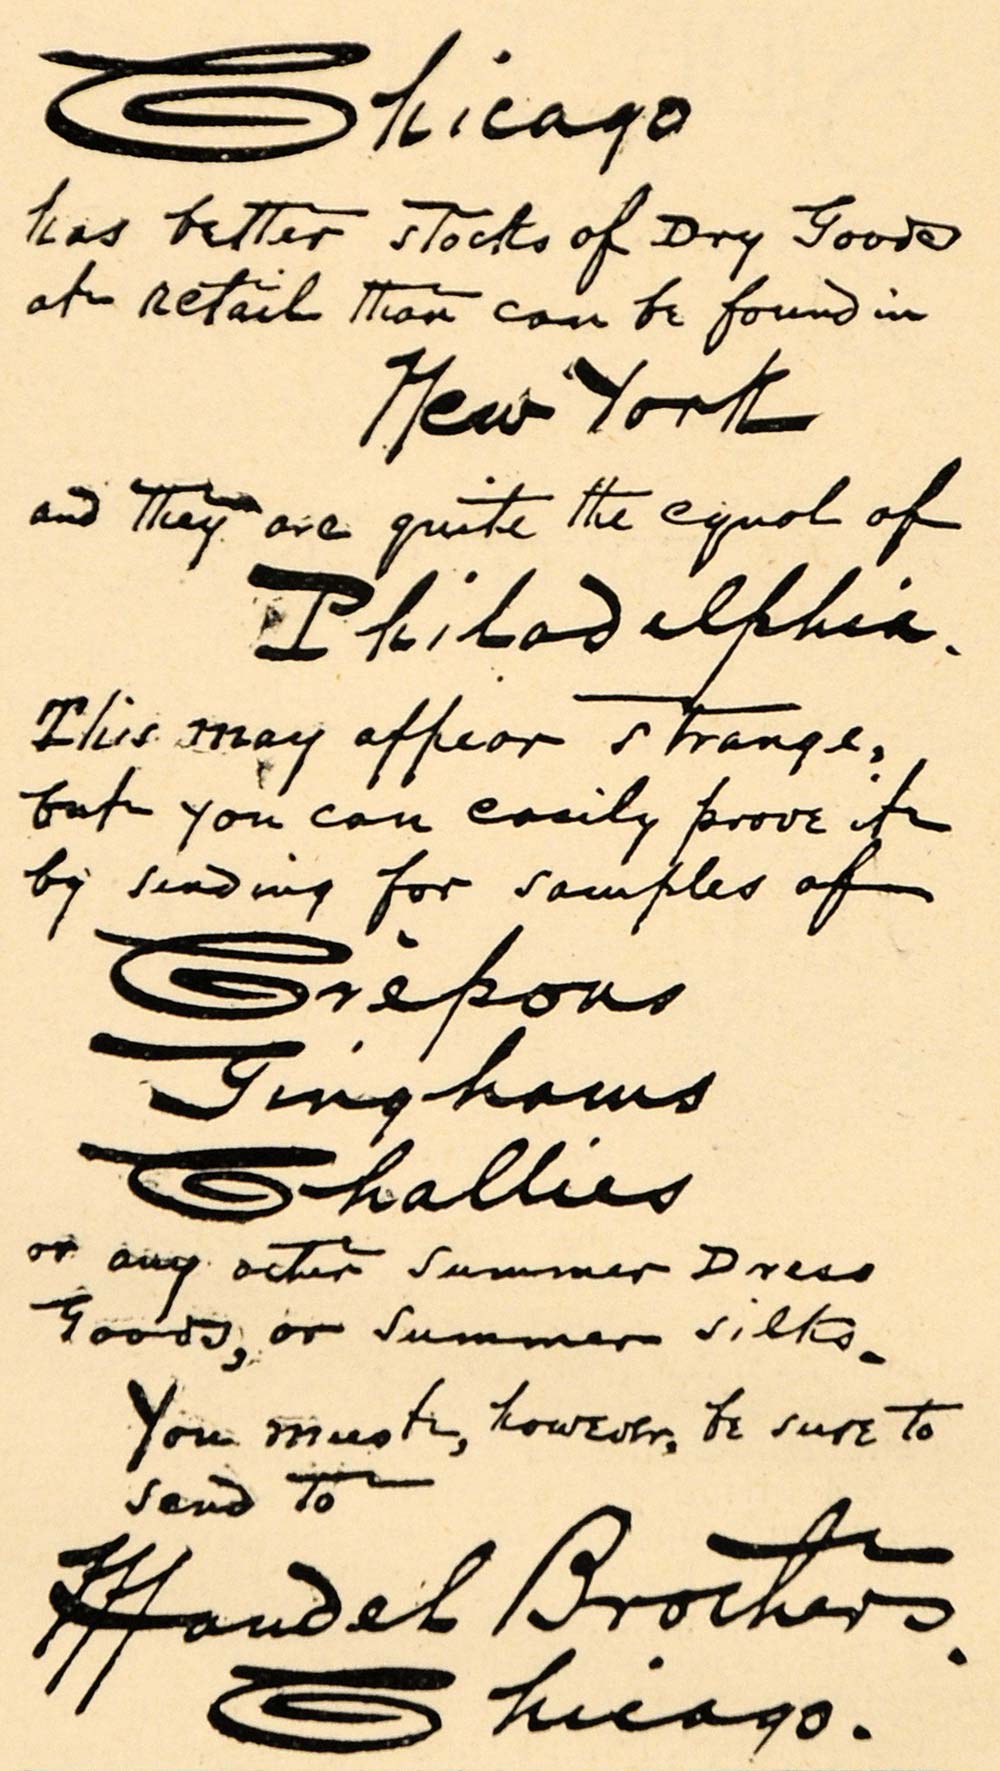 Chicago
has better stocks of Dry Goods
at retail than can be found in
New York
and they are quite the equal of
Philadelphia.
This may appear strange,
but you can easily prove it
by sending for samples of
Crêpons
Ginghams
Challies
or any other Summer Dress
Goods, or Summer silks.
You must, however, be sure to
send to
Mandel Brothers.
Chicago.